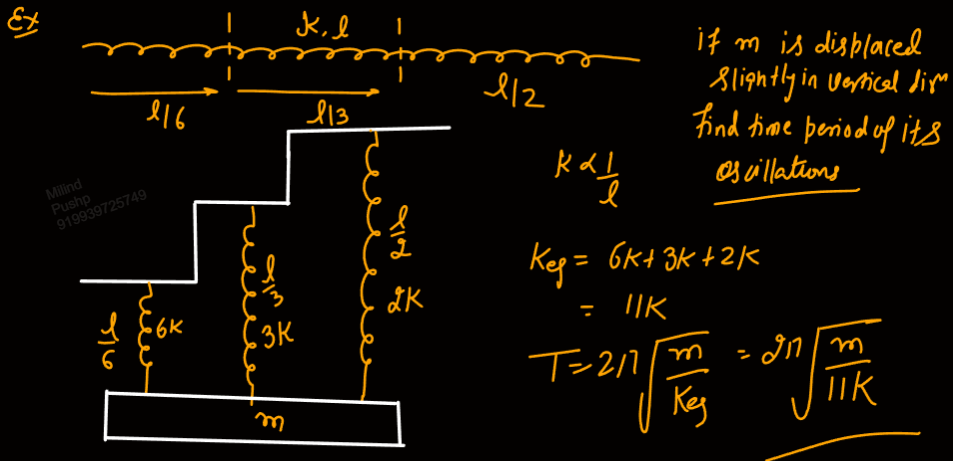 Ex
K, l
l/6
l/3
l/2
if m is displaced
slightly in vertical dirn
find time period of its
oscillations
Milind
Pushp
919939725749
K ∝ 1/l
l/6
6K
l/3
3K
l/2
2K
m
Keq = 6K + 3K + 2K
= 11K
T = 2π√(m/Keq) = 2π√(m/11K)